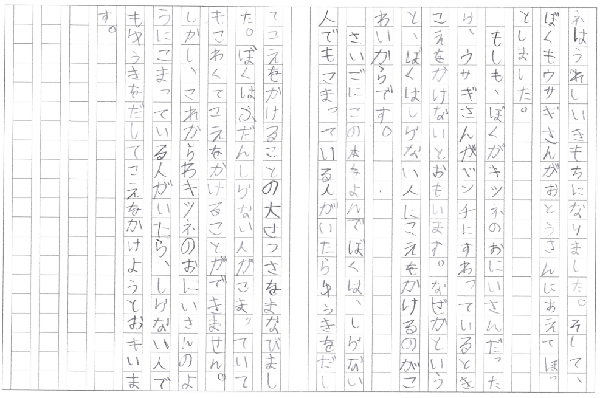 ネはうれしいきもちになりました。そして、
ぼくもウサギさんがおとうさんにあえてほっ
としました。
もしも、ぼくがキツネのおにいさんだった
ら、ウサギさんがベンチにすわっているとき
こえをかけないとおもいます。なぜかという
と、ぼくはしらない人にこえをかけるのがこ
わいからです。
さいごにこの本をよんでぼくは、しらない
人でもこまっている人がいたらゆうきをだし
てこえをかけることの大せつさをまなびまし
た。ぼくはふだんしらない人がこまっていて
もこわくてこえをかけることができません。
しかし、これからわキツネのおにいさんのよ
うにこまっている人がいたら、しらない人で
もゆうきをだしてこえをかけようとおもいま
す。